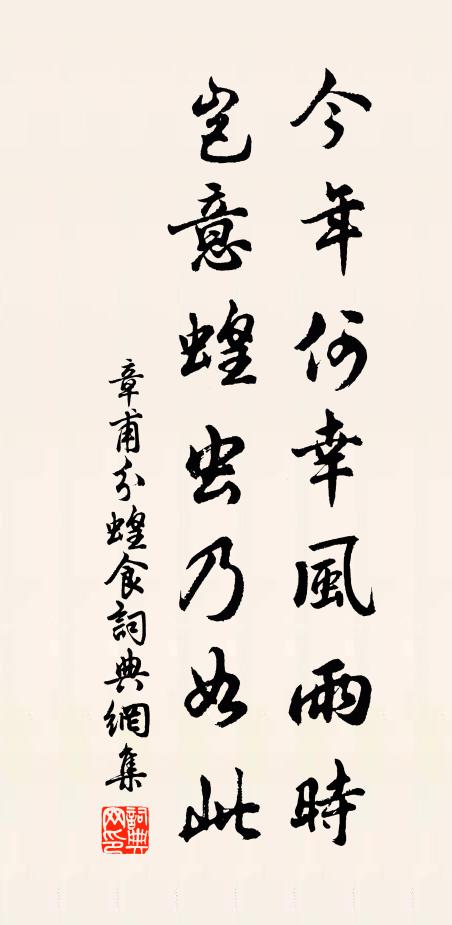 今年何幸風雨時
豈意蝗虫乃如此
章甫分蝗食詞典網集
詞典网印